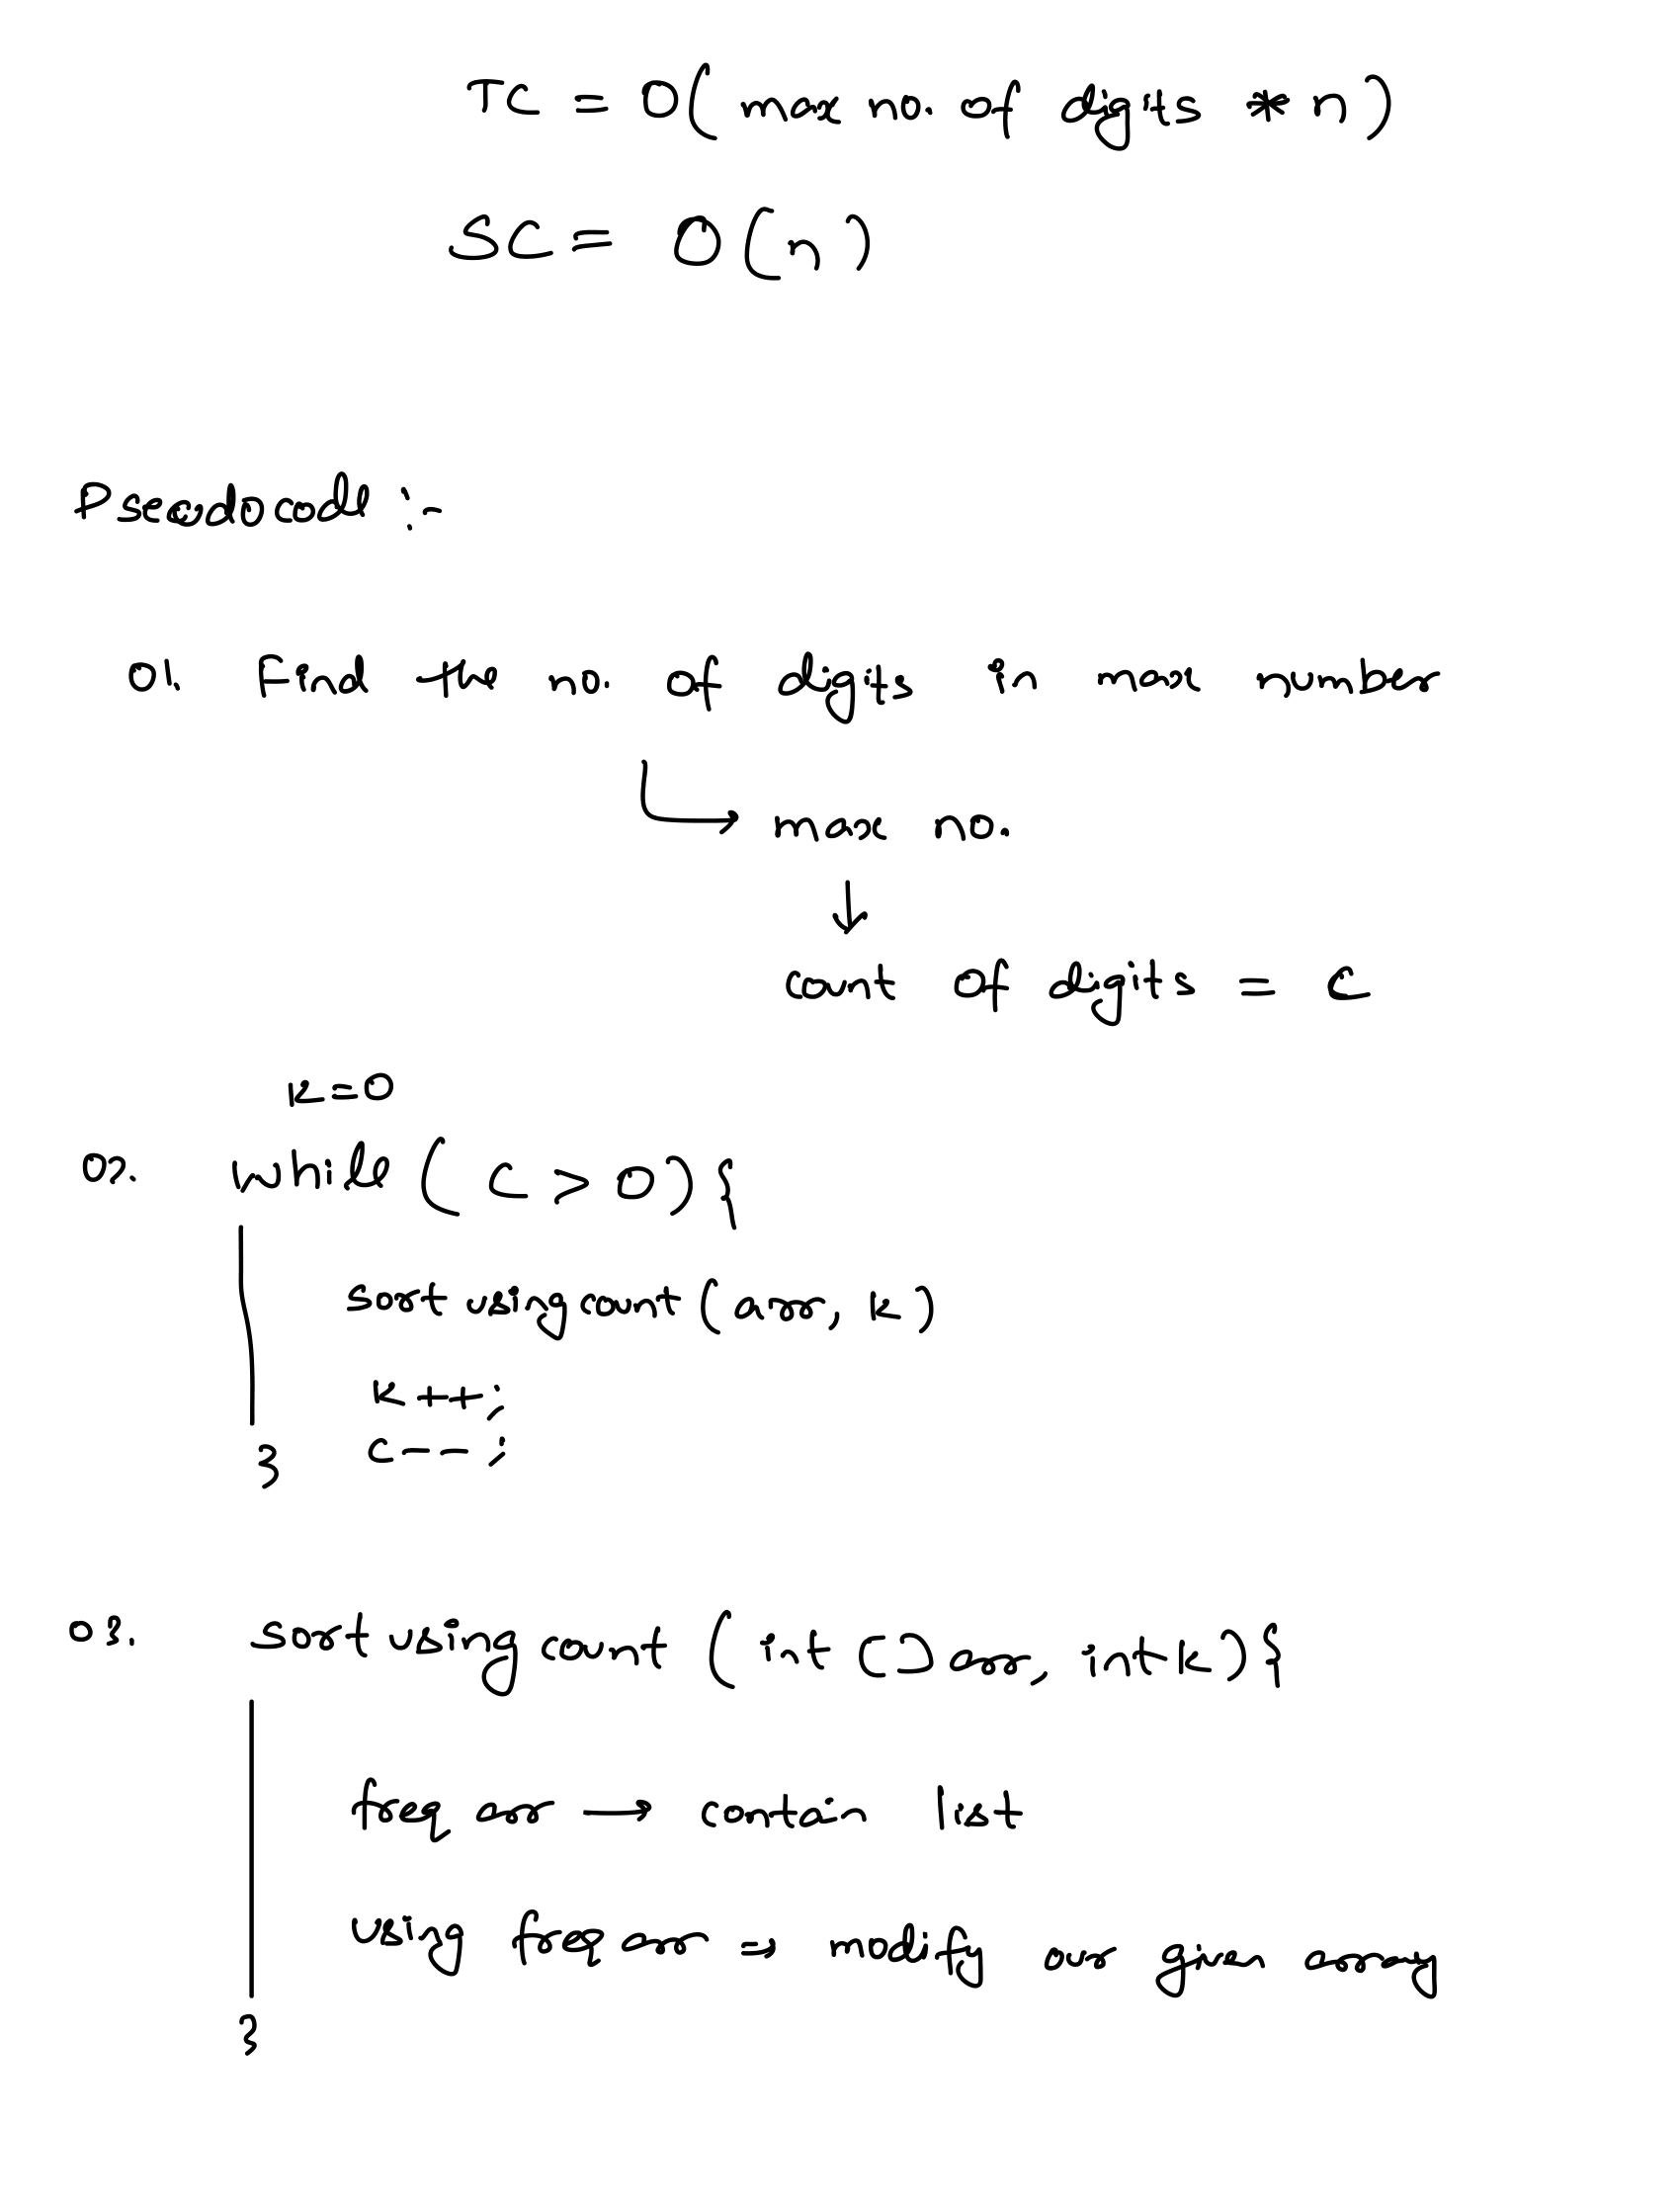 TC = O( max no. of digits * n )
SC = O(n)
Pseudocode :-
01. Find the no. of digits in max number
max no.
count of digits = c
k=0
02. while ( c > 0 ) {
sort using count ( arr, k )
k++;
c--;
}
03. sort using count ( int [] arr, int k ) {
freq arr → contain list
using freq arr ⇒ modify our given array
}